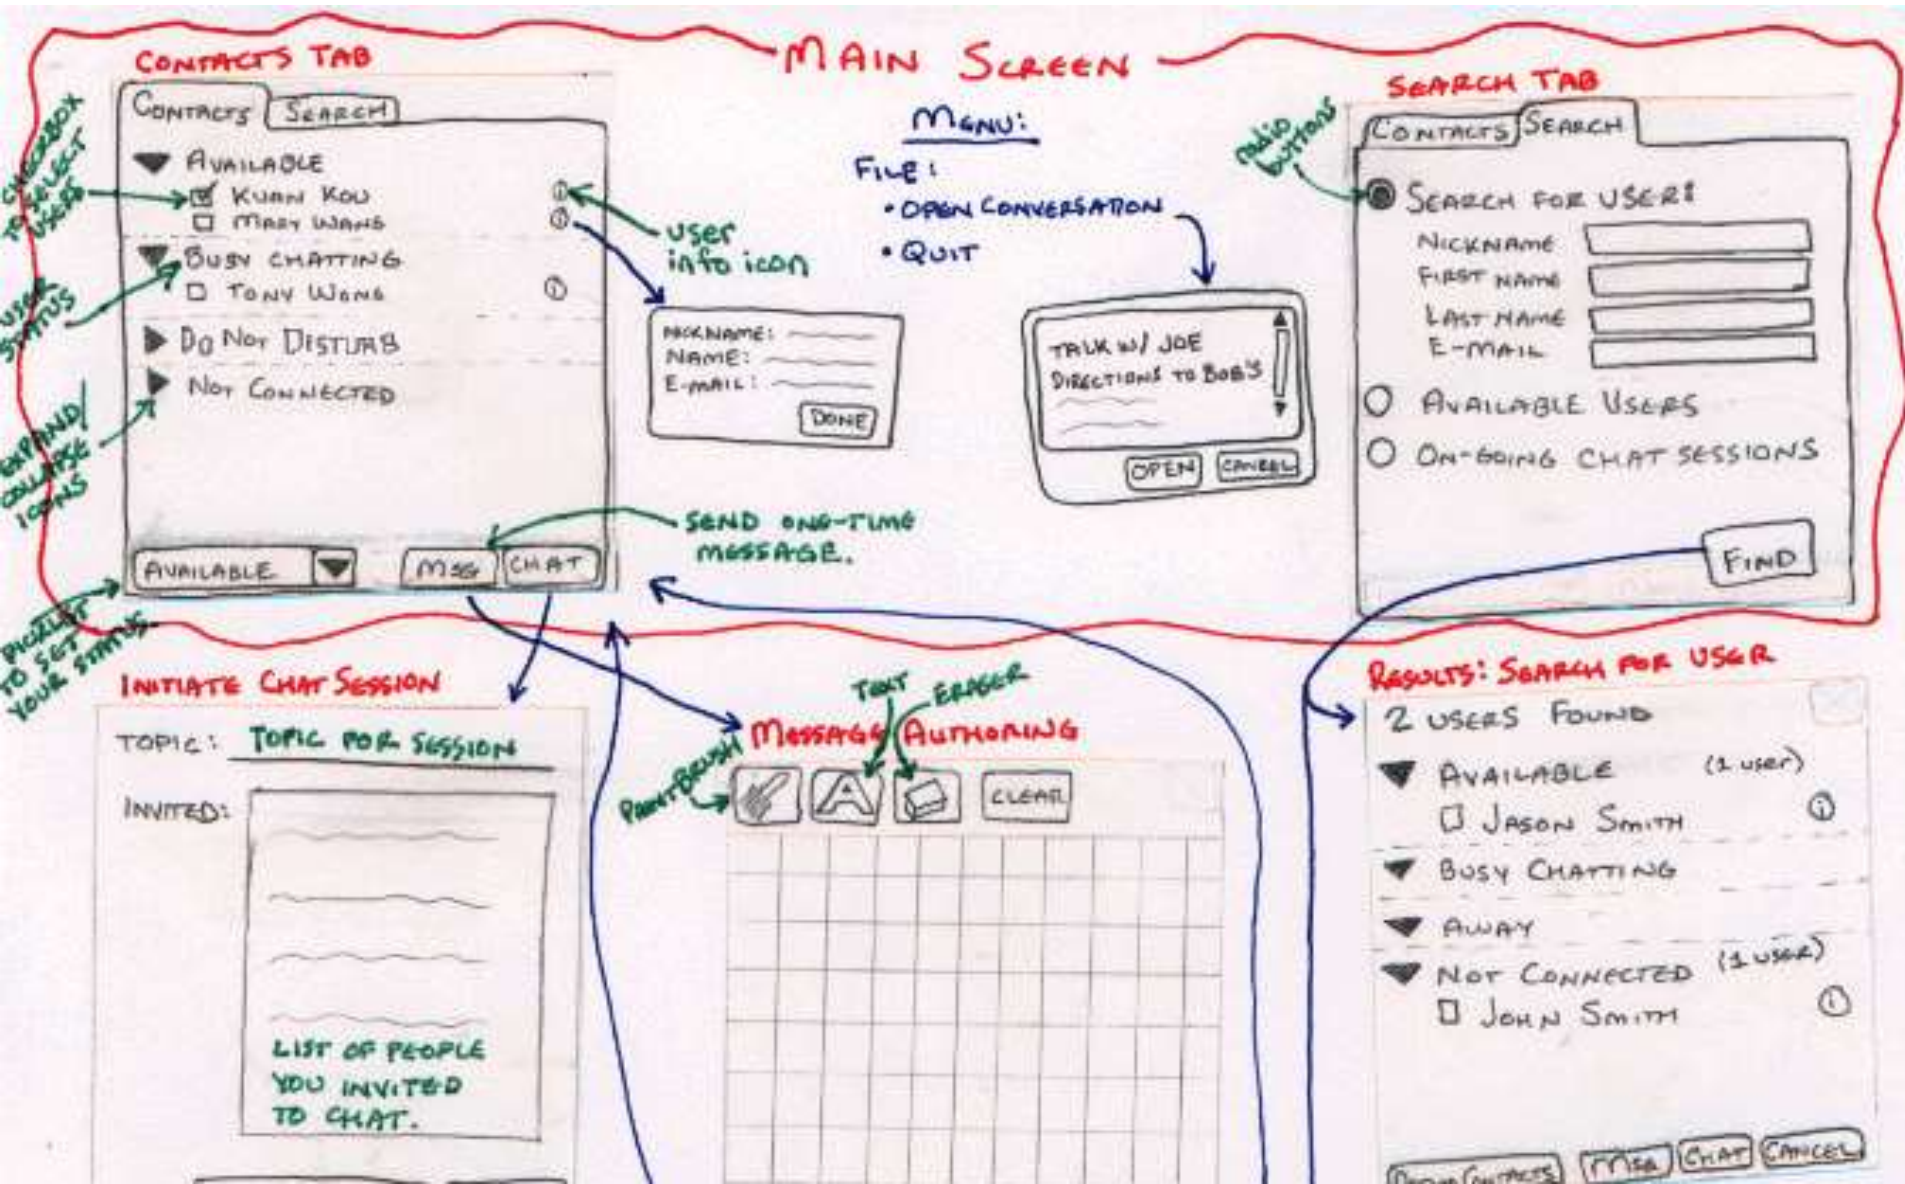 MAIN SCREEN
CONTACTS TAB
CONTACTS
SEARCH
CHECKBOX
TO SELECT
USERS
AVAILABLE
KUAN KOU
MARY WANG
BUSY CHATTING
TONY WONG
USER
STATUS
DO NOT DISTURB
NOT CONNECTED
EXPAND/
COLLAPSE
ICONS
AVAILABLE
MSG
CHAT
PICKLIST
TO SET
YOUR STATUS
user
info icon
SEND ONE-TIME
MESSAGE.
NICKNAME:
NAME:
E-MAIL:
DONE
MENU:
FILE:
• OPEN CONVERSATION
• QUIT
TALK W/ JOE
DIRECTIONS TO BOB'S
OPEN
CANCEL
SEARCH TAB
radio
buttons
CONTACTS
SEARCH
SEARCH FOR USER:
NICKNAME
FIRST NAME
LAST NAME
E-MAIL
AVAILABLE USERS
ON-GOING CHAT SESSIONS
FIND
INITIATE CHAT SESSION
TOPIC: TOPIC FOR SESSION
INVITED:
LIST OF PEOPLE
YOU INVITED
TO CHAT.
TEXT
ERASER
MESSAGE AUTHORING
PAINTBRUSH
A
CLEAR
RESULTS: SEARCH FOR USER
2 USERS FOUND
AVAILABLE (1 user)
JASON SMITH
BUSY CHATTING
AWAY
NOT CONNECTED (1 USER)
JOHN SMITH
CONTACTS
MSG
CHAT
CANCEL